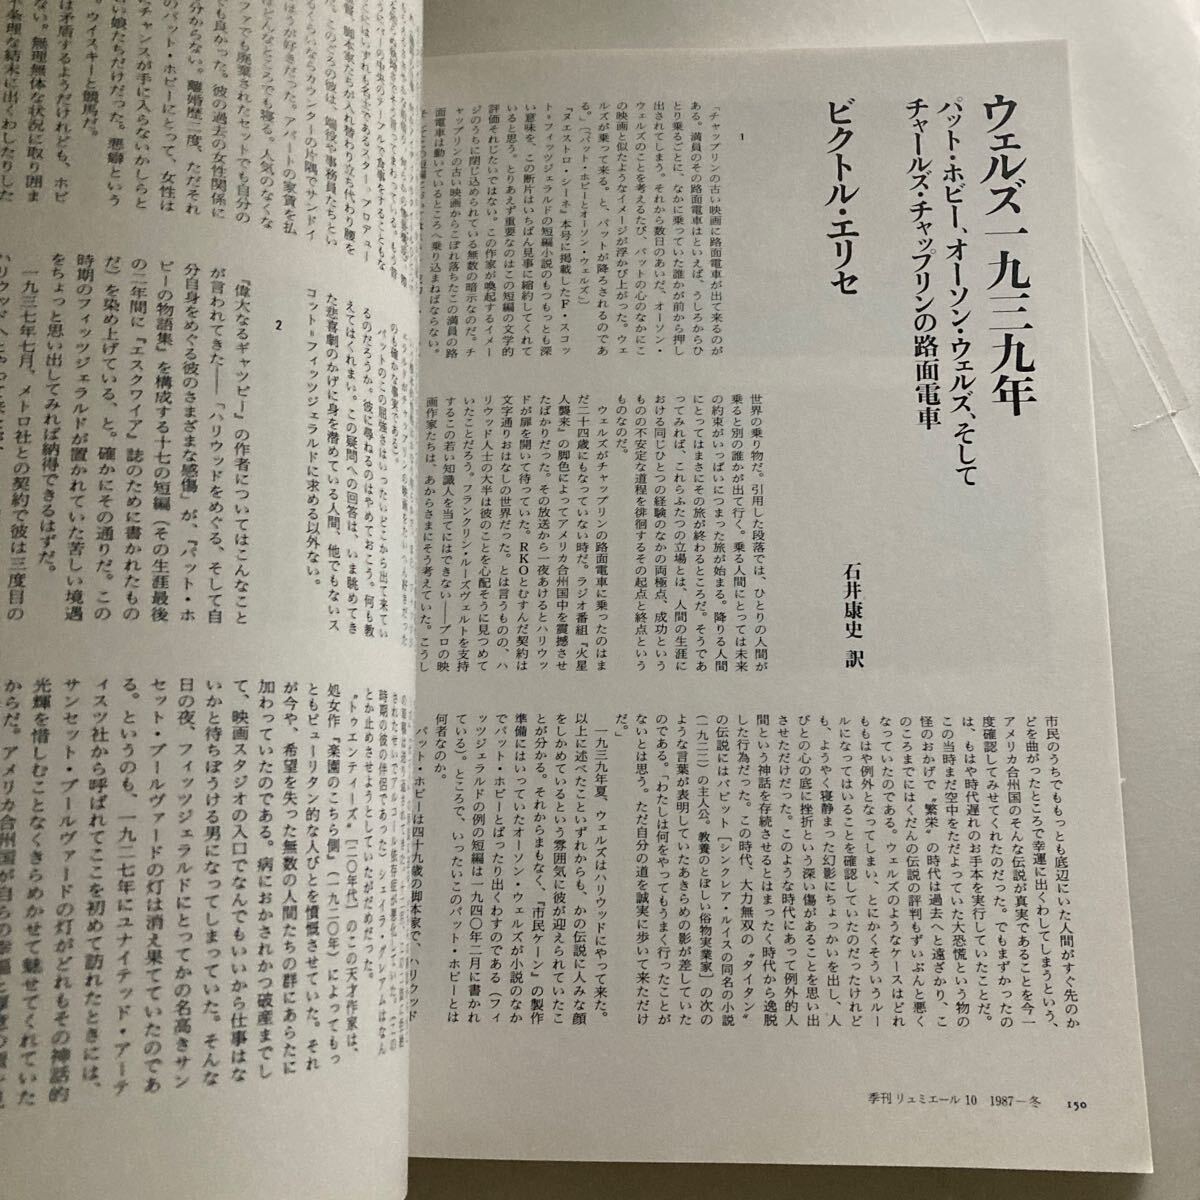 ウェルズ一九三九年
パット・ホビー、オーソン・ウェルズ、そして
チャールズ・チャップリンの路面電車
ビクトル・エリセ
石井康史 訳
1
「チャップリンの古い映画に路面電車が出て来るのが
ある。満員のその路面電車はといえば、うしろからひ
とり乗るごとに、なかに乗っていた誰かが前から押し
出されてしまう。それから数日のあいだ、オーソン・
ウェルズのことを考えるたび、パットの心のなかにこ
の映画と似たようなイメージが浮かび上がった。ウェ
ルズが乗って来る。と、パットが降ろされるのであ
る。」(「パット・ホビーとオーソン・ウェルズ」)
『ヌエストロ・シーネ』本号に掲載したF・スコッ
ト=フィッツジェラルドの短編小説のもつもっとも深
い意味を、この断片はいちばん見事に縮約してくれて
いると思う。とりあえず重要なのはこの短編の文学的
評価それじたいではない。この作家が喚起するイメー
ジのうちに閉じ込められている無数の暗示なのだ。チ
ャップリンの古い映画からこぼれ落ちたこの満員の路
面電車は動いているところへ乗り込まねばならない。
世界の乗り物だ。引用した段落では、ひとりの人間が
乗ると別の誰かが出て行く。乗る人間にとっては未来
の約束がいっぱいにつまった旅が始まる。降りる人間
にとってはまさにその旅が終わるところだ。そうであ
ってみれば、これらふたつの立場とは、人間の生涯に
おける同じひとつの経験のなかの両極点、成功という
ものの不安定な道程を徘徊するその起点と終点という
ものなのだ。
ウェルズがチャップリンの路面電車に乗ったのはま
だ二十四歳にもなっていない時だ。ラジオ番組『火星
人襲来』の脚色によってアメリカ合州国中を震撼させ
たばかりだった。その放送から一夜あけるとハリウッ
ドが扉を開いて待っていた。RKOとむすんだ契約は
文字通りおはなしの世界だった。とは言うものの、ハ
リウッド人士の大半は彼のことを心配そうに見つめて
いたことだろう。フランクリン・ルーズヴェルトを支持
するこの若い知識人を当てにはできない――プロの映
画作家たちは、あからさまにそう考えていた。こうし
市民のうちでももっとも底辺にいた人間がすぐ先のか
どを曲がったところで幸運に出くわしてしまうという、
アメリカ合州国のそんな伝説が真実であることを今一
度確認してみせてくれたのだった。でもまずかったの
は、もはや時代遅れのお手本を実行していたことだ。
この当時まだ空中をただよっていた大恐慌という物の
怪のおかげで〝繁栄〟の時代は過去へと遠ざかり、こ
のころまでにはくだんの伝説の評判もずいぶんと悪く
なっていたのである。ウェルズのようなケースはどれ
ももはや例外となってしまい、とにかくそういうルー
ルになってはいることを確認していたのだったけれど
も、ようやく寝静まった幻影にちょっかいを出し、人
びとの心の底に挫折という深い傷があることを思い出
させただけだった。このような時代にあって例外的人
間という神話を存続させるとはまったく時代から逸脱
した行為だった。この時代、大力無双の〝タイタン〟
の伝説にはバビット[シンクレア・ルイスの同名の小説
(一九二二)の主人公。教養のとぼしい俗物実業家]の次の
ような言葉が表明していたあきらめの影が差していた
のである。「わたしは何をやってもうまく行ったことが
ないとは思う。ただ自分の道を誠実に歩いて来ただけ
だ。」
一九三九年夏、ウェルズはハリウッドにやって来た。
以上に述べたことといずれからも、かの伝説に人みな顔
をしかめているという雰囲気に彼が迎えられていたこ
とが分かる。それからまもなく、『市民ケーン』の製作
準備にはいっていたオーソン・ウェルズが小説のなか
でパット・ホビーとばったり出くわすのである(フィ
ッツジェラルドの例の短編は一九四〇年二月に書かれ
ている)。ところで、いったいこのパット・ホビーとは
何者なのか。
パット・ホビーは四十九歳の脚本家で、ハリウッド
季刊 リュミエール 10 1987－冬 150
2
『偉大なるギャツビー』の作者についてはこんなこと
が言われてきた――「ハリウッドをめぐる、そして自
分自身をめぐる彼のさまざまな感傷」が、『パット・ホ
ビーの物語集』を構成する十七の短編(その生涯最後
の二年間に『エスクワイア』誌のために書かれたもの
だ)を染め上げている、と。確かにその通りだ。この
時期のフィッツジェラルドが置かれていた苦しい境遇
をちょっと思い出してみれば納得できるはずだ。
一九三七年七月、メトロ社との契約で彼は三度目の
パットのこの屈強さはいったいどこから出て来てい
るのだろうか。彼に尋ねるのはやめておこう。何も教
えてはくれまい。この疑問への回答は、いま眺めてき
た悲喜劇のかげに身を潜めている人間、他でもないス
コット=フィッツジェラルドに求める以外ない。
処女作『楽園のこちら側』(一九二〇年)によってもっ
ともピューリタン的な人びとを憤慨させていた。それ
が今や、希望を失った無数の人間たちの群にあらたに
加わっていたのである。病におかされかつ破産までし
て、映画スタジオの入口でなんでもいいから仕事はな
いかと待ちぼうける男になってしまっていた。そんな
日の夜、フィッツジェラルドにとってかの名高きサン
セット・ブールヴァードの灯は消え果てていたのであ
る。というのも、一九二七年にユナイテッド・アーテ
ィスツ社から呼ばれてここを初めて訪れたときには、
サンセット・ブールヴァードの灯がどれもその神話的
光輝を惜しむことなくきらめかせて魅せてくれていた